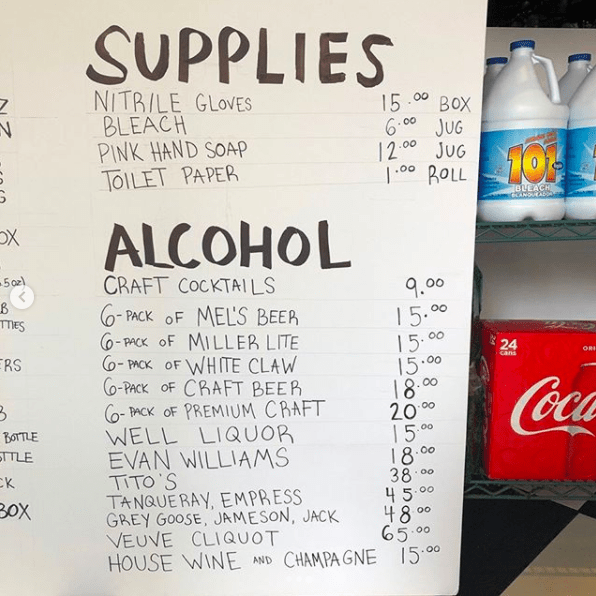 SUPPLIES
NITRILE GLOVES 15.00 BOX
BLEACH 6.00 JUG
PINK HAND SOAP 12.00 JUG
TOILET PAPER 1.00 ROLL
ALCOHOL
CRAFT COCKTAILS 9.00
6-PACK OF MEL'S BEER 15.00
6-PACK OF MILLER LITE 15.00
6-PACK OF WHITE CLAW 15.00
6-PACK OF CRAFT BEER 18.00
6-PACK OF PREMIUM CRAFT 20.00
WELL LIQUOR 15.00
EVAN WILLIAMS 18.00
TITO'S 38.00
TANQUERAY, EMPRESS 45.00
GREY GOOSE, JAMESON, JACK 48.00
VEUVE CLIQUOT 65.00
HOUSE WINE AND CHAMPAGNE 15.00
BOTTLE
BOX
101
BLEACH
BLANQUEADOR
24
cans
Coca